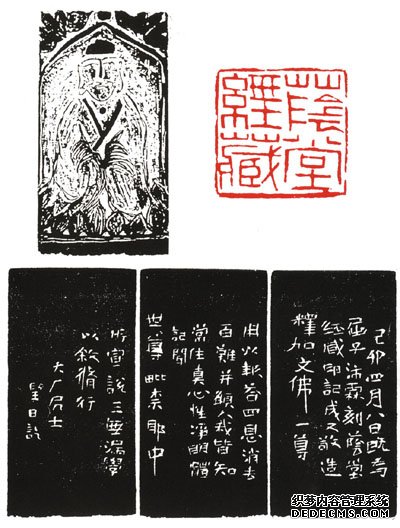 蔭堂
經藏
己卯四月八日既為
沐霖刻蔭堂
經藏印記成又敬造
釋加文佛一尊
用以報答四恩消去
百難并願八戒皆知
常住真心性淨明體
世尊毗奈耶中
所宣說三無漏學
以敘脩行
大厂居士
聖日記
织梦内容管理系统
DEDECMS.COM